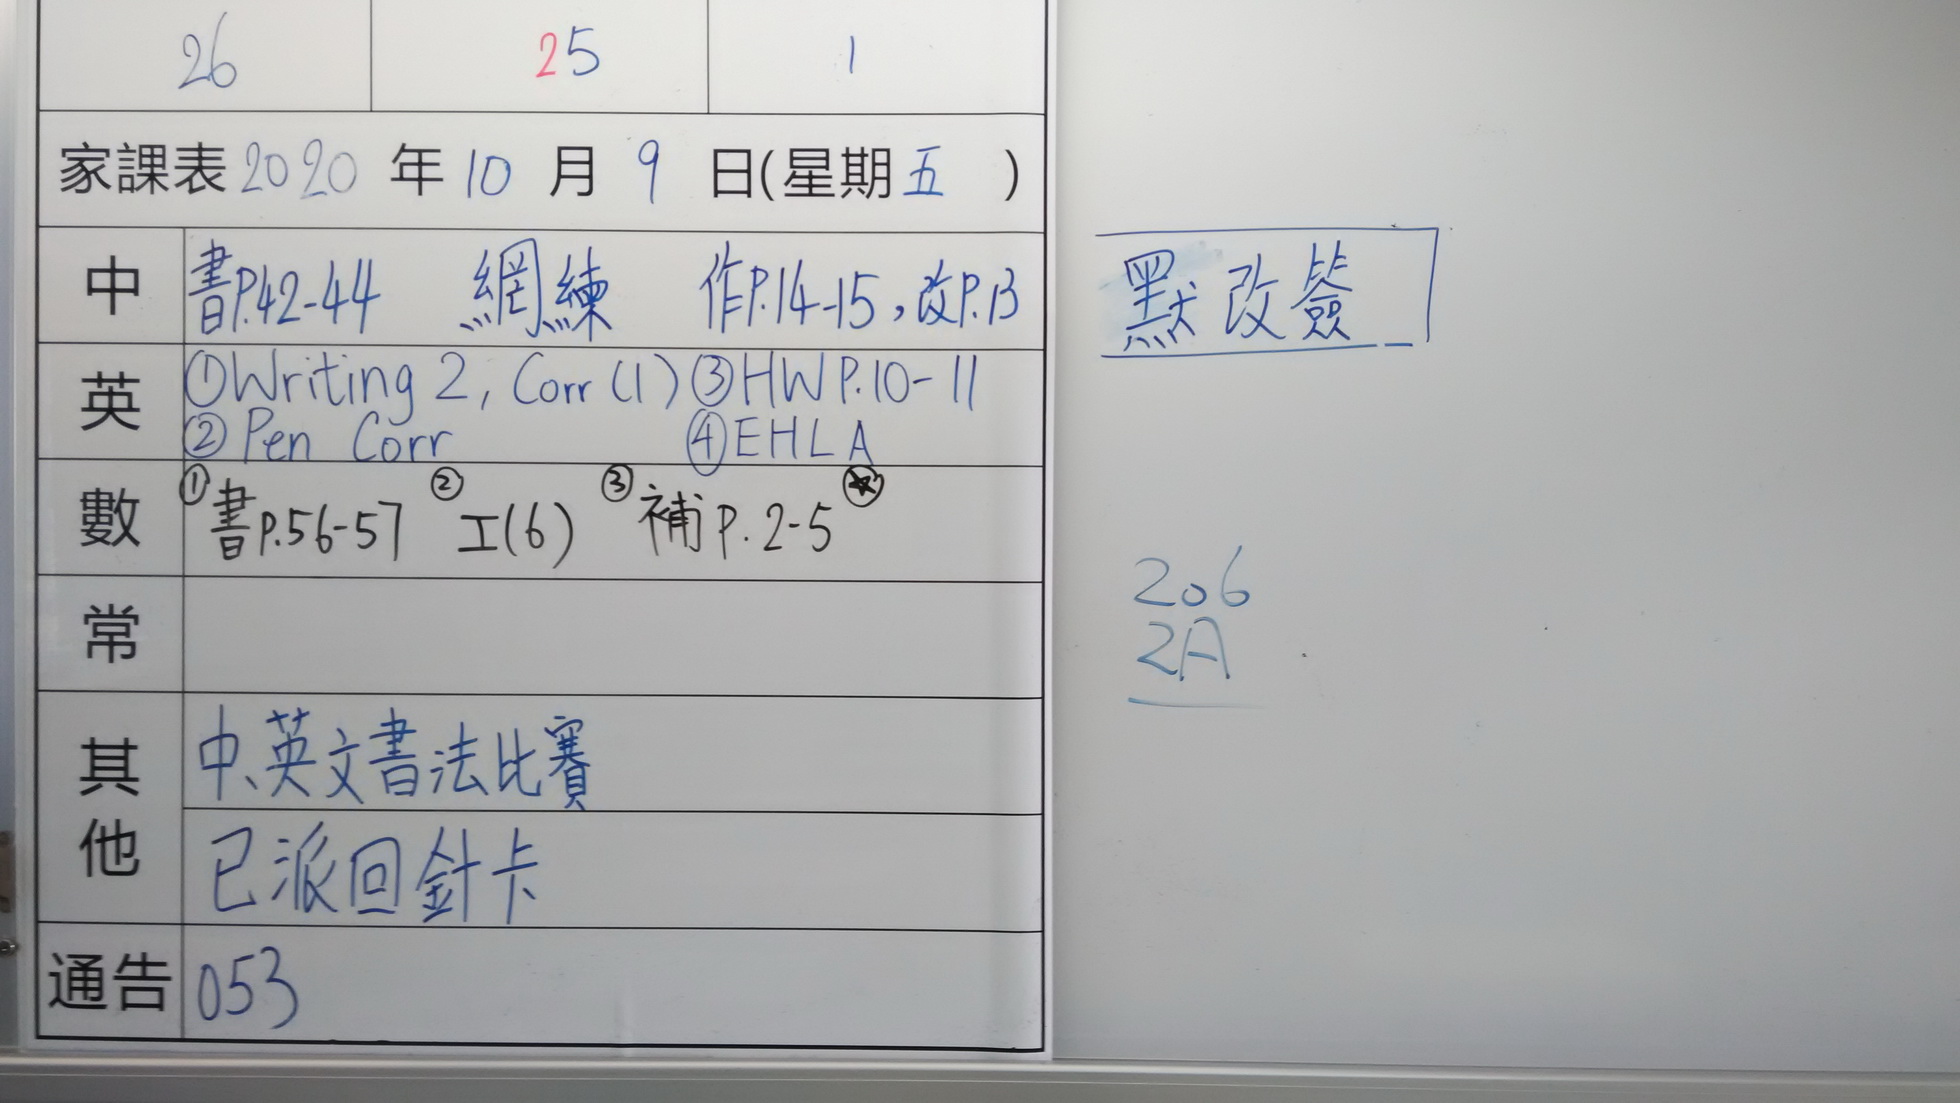 26 25 1
家課表2020年10月9日(星期五)
中 書P.42-44 網練 作P.14-15,改P.13
英 ①Writing 2, Corr(1) ③HW P.10-11
②Pen Corr ④EHLA
數 ①書P.56-57 ②工(6) ③補P.2-5 ☆
常
其他 中、英文書法比賽
已派回針卡
通告 053
默改簽
206
2A